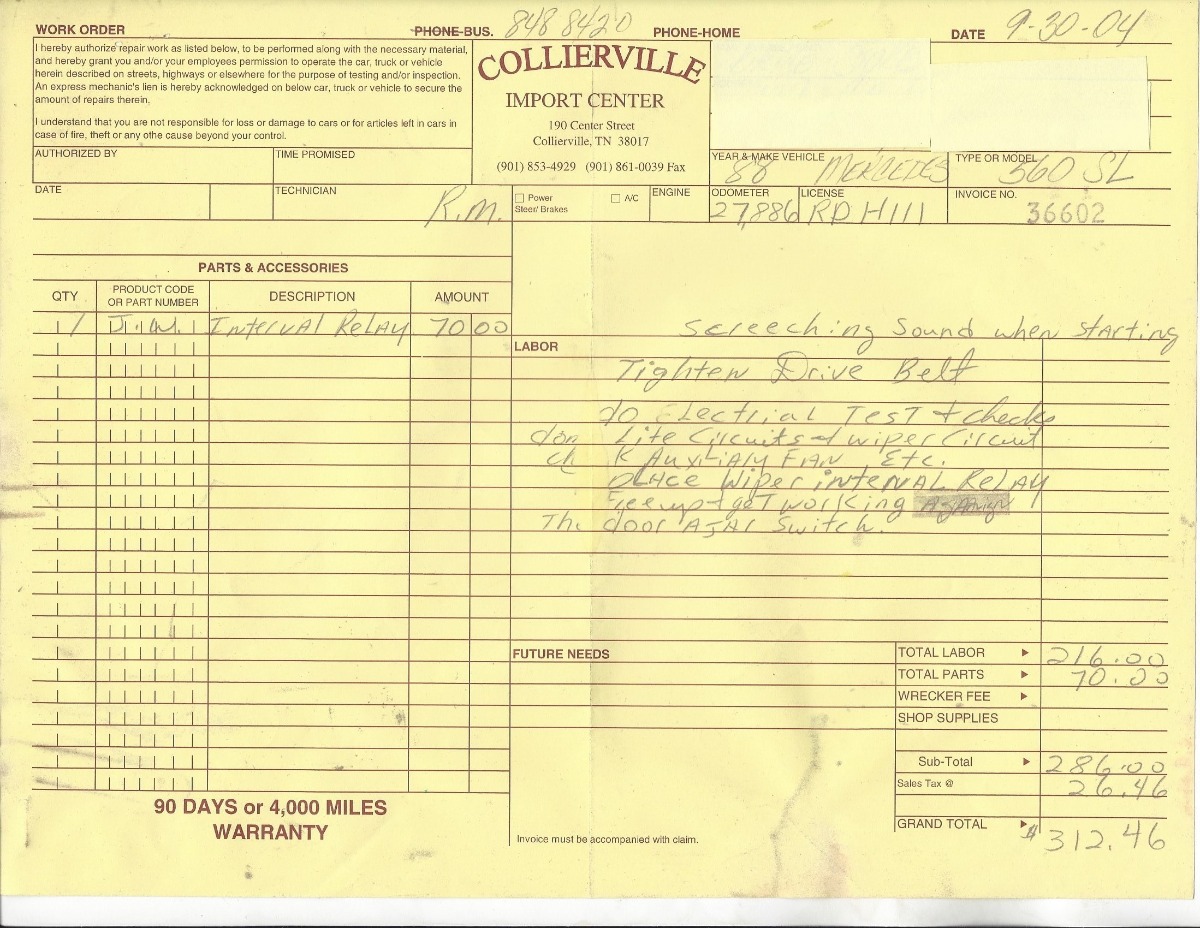 WORK ORDER
PHONE-BUS. 848 8420
PHONE-HOME
DATE 9-30-04
I hereby authorize repair work as listed below, to be performed along with the necessary material,
and hereby grant you and/or your employees permission to operate the car, truck or vehicle
herein described on streets, highways or elsewhere for the purpose of testing and/or inspection.
An express mechanic's lien is hereby acknowledged on below car, truck or vehicle to secure the
amount of repairs therein.
I understand that you are not responsible for loss or damage to cars or for articles left in cars in
case of fire, theft or any othe cause beyond your control.
COLLIERVILLE
IMPORT CENTER
190 Center Street
Collierville, TN 38017
(901) 853-4929 (901) 861-0039 Fax
AUTHORIZED BY
TIME PROMISED
YEAR & MAKE VEHICLE 88 MERCEDES
TYPE OR MODEL 560 SL
DATE
TECHNICIAN R.M.
Power
Steer/ Brakes
A/C
ENGINE
ODOMETER 27,886
LICENSE RDH111
INVOICE NO. 36602
PARTS & ACCESSORIES
QTY
PRODUCT CODE
OR PART NUMBER
DESCRIPTION
AMOUNT
1 J.W. Interval Relay 70 00
Screeching Sound when starting
LABOR
Tighten Drive Belt
do Electrial Test + checks
don Lite Circuits + wiper Circuit
ch k Auxiliary FAN Etc.
place Wiper interval Relay
ree up + get working
The door AJAr Switch.
FUTURE NEEDS
TOTAL LABOR 216.00
TOTAL PARTS 70.00
WRECKER FEE
SHOP SUPPLIES
Sub-Total 286.00
Sales Tax @ 26.46
GRAND TOTAL $312.46
90 DAYS or 4,000 MILES
WARRANTY
Invoice must be accompanied with claim.